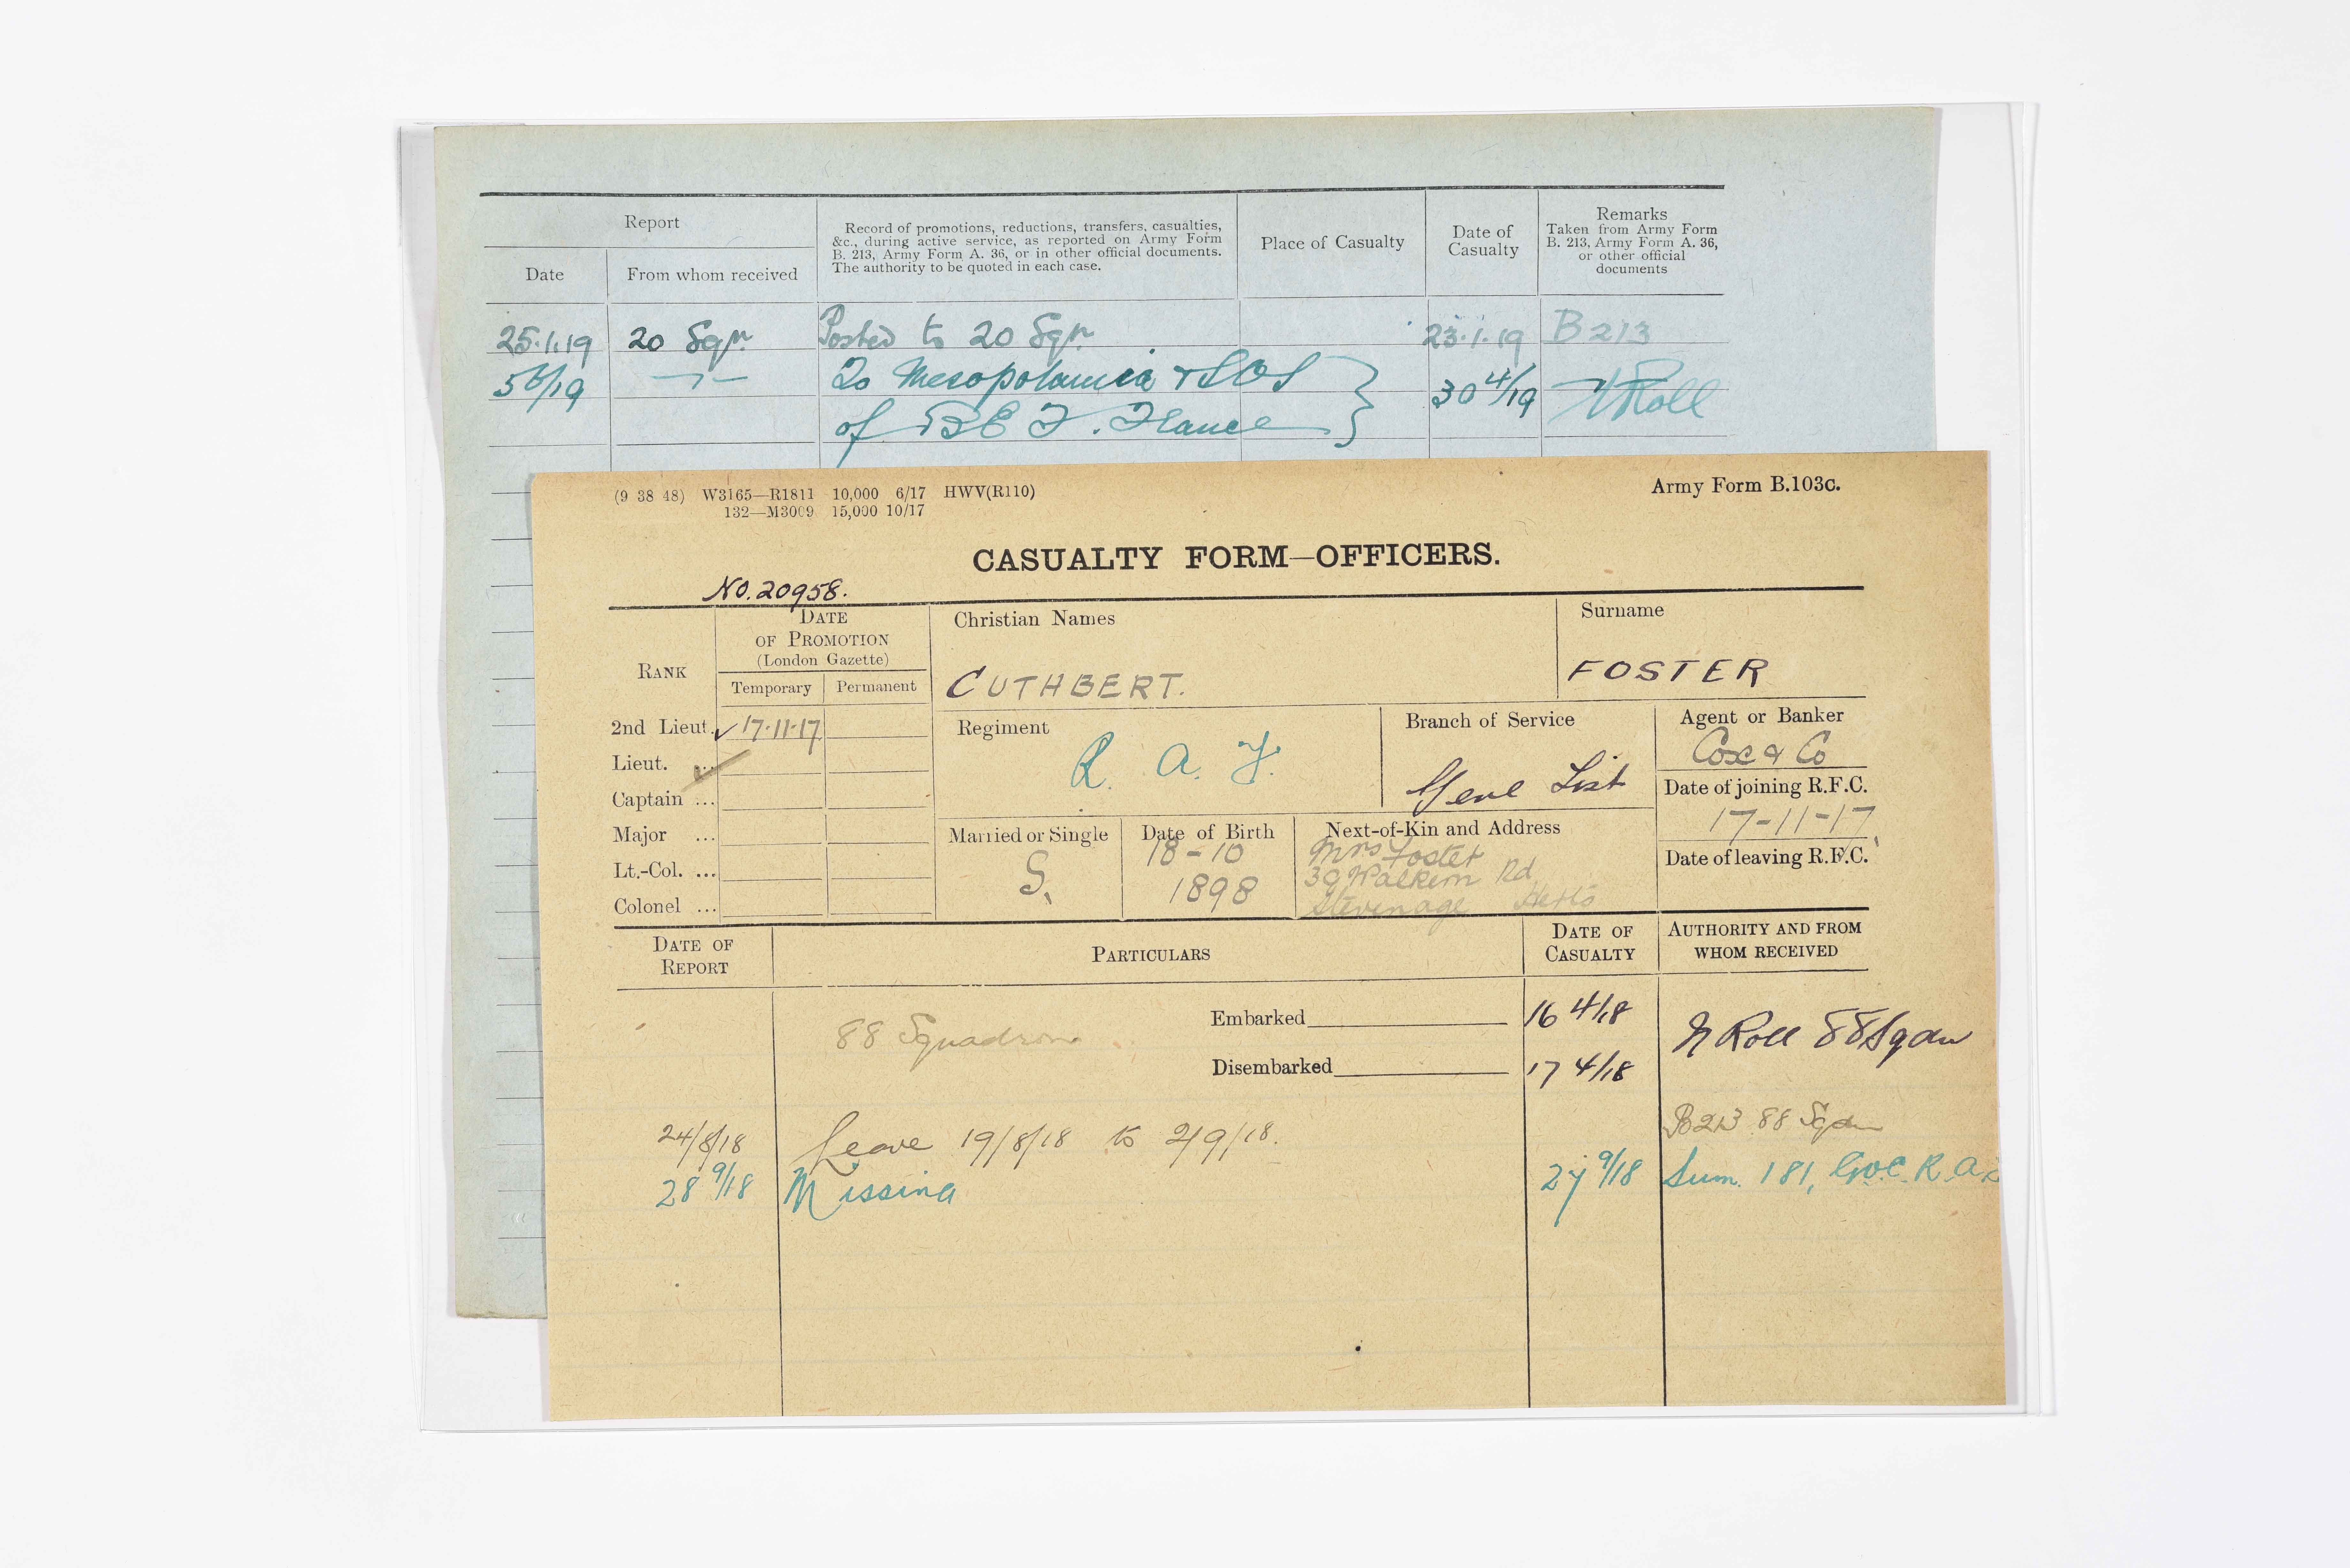 Report
Date
From whom received
Record of promotions, reductions, transfers, casualties,
&c., during active service, as reported on Army Form
B. 213, Army Form A. 36, or in other official documents.
The authority to be quoted in each case.
Place of Casualty
Date of
Casualty
Remarks
Taken from Army Form
B. 213, Army Form A. 36,
or other official
documents
25.1.19 20 Sqn Posted to 20 Sqn 23.1.19 B213
5 6/19 To Mesopotamia & SOS 30 4/19 N Roll
of BEF. France
(9 38 48) W3165—R1811 10,000 6/17 HWV(R110)
132—M3009 15,000 10/17
Army Form B.103c.
CASUALTY FORM—OFFICERS.
No. 20958.
RANK
DATE
OF PROMOTION
(London Gazette)
Temporary Permanent
Christian Names
CUTHBERT.
Surname
FOSTER
2nd Lieut. 17.11.17
Lieut. ...
Captain ...
Major ...
Lt.-Col. ...
Colonel ...
Regiment
R. A. F.
Branch of Service
Genl List
Agent or Banker
Cox & Co
Date of joining R.F.C.
17-11-17
Date of leaving R.F.C.
Married or Single
S.
Date of Birth
18-10
1898
Next-of-Kin and Address
Mrs Foster
39 Walkern Rd
Stevenage Herts
DATE OF
REPORT
PARTICULARS
DATE OF
CASUALTY
AUTHORITY AND FROM
WHOM RECEIVED
88 Squadron
Embarked 16 4/18
Disembarked 17 4/18
N Roll 88 Sqdn
24/8/18 Leave 19/8/18 to 2/9/18. B213 88 Sqdn
28 9/18 Missing 27 9/18 Sum. 181, G.O.C. R.A.F